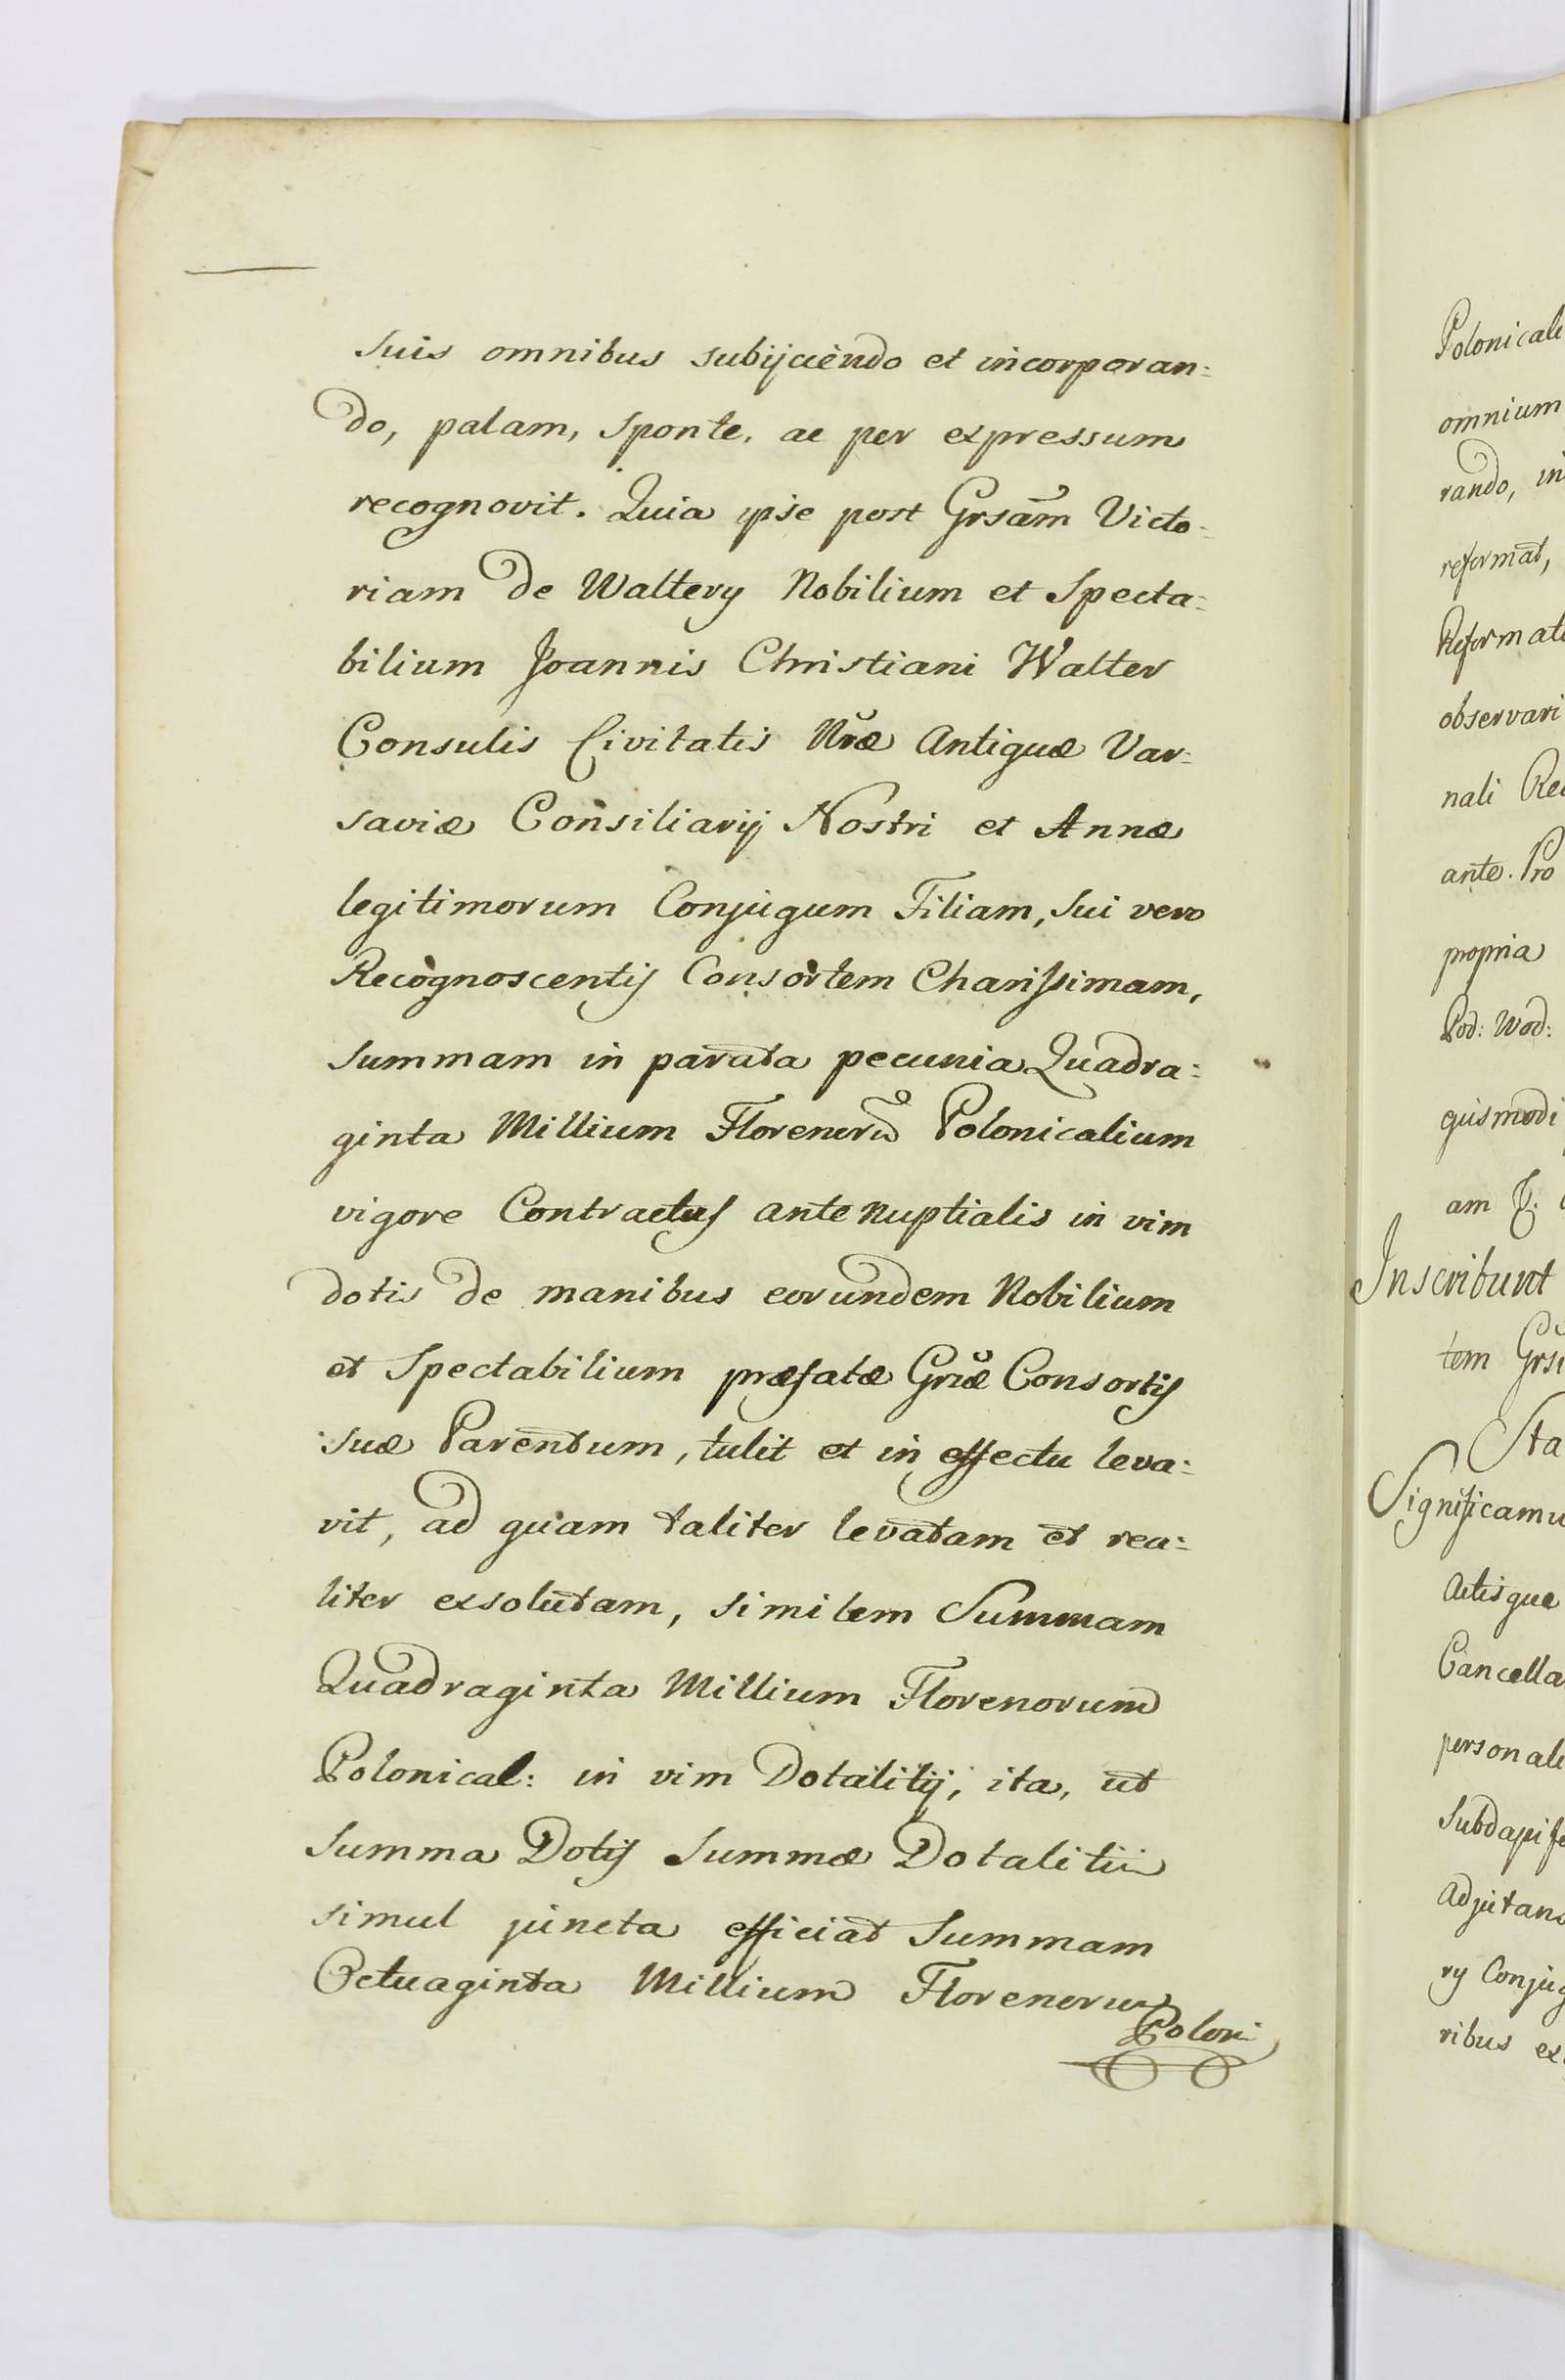 suis omnibus subijciendo et incorporan:
do, palam, sponte, ac per expressum
recognovit. Quia ipse post Grsam Victo:
riam de Waltery Nobilium et Specta:
bilium Joannis Christiani Walter
Consulis Civitatis Nræ Antiquæ Var:
saviæ Consiliarij Nostri et Annæ
legitimorum Conjugum Filiam, sui vero
Recognoscentis Consortem Charissimam,
summam in parata pecunia Quadra:
ginta Millium Florenorū Polonicalium
vigore Contractus antenuptialis in vim
dotis de manibus eorundem Nobilium
et Spectabilium præfatæ Grsæ Consortis
suæ Parentum, tulit et in effectu leva:
vit, ad quam taliter levatam et rea:
liter exsolutam, similem Summam
Quadraginta Millium Florenorum
Polonical: in vim Dotalitij, ita, ut
Summa Dotis Summæ Dotalitii
simul juncta efficiat Summam
Octuaginta Millium Florenorum
Poloni
Polonicali
omnium
rando, in
reformat,
Reformat
observari
nali Re
ante. Pro
propria
Pod: Wod:
eiusmodi
am
Inscribunt
tem
Sta
Significamu
Actisque
Cancella
personal
Subdapife
Adjutan
ry Conjug
ribus ex